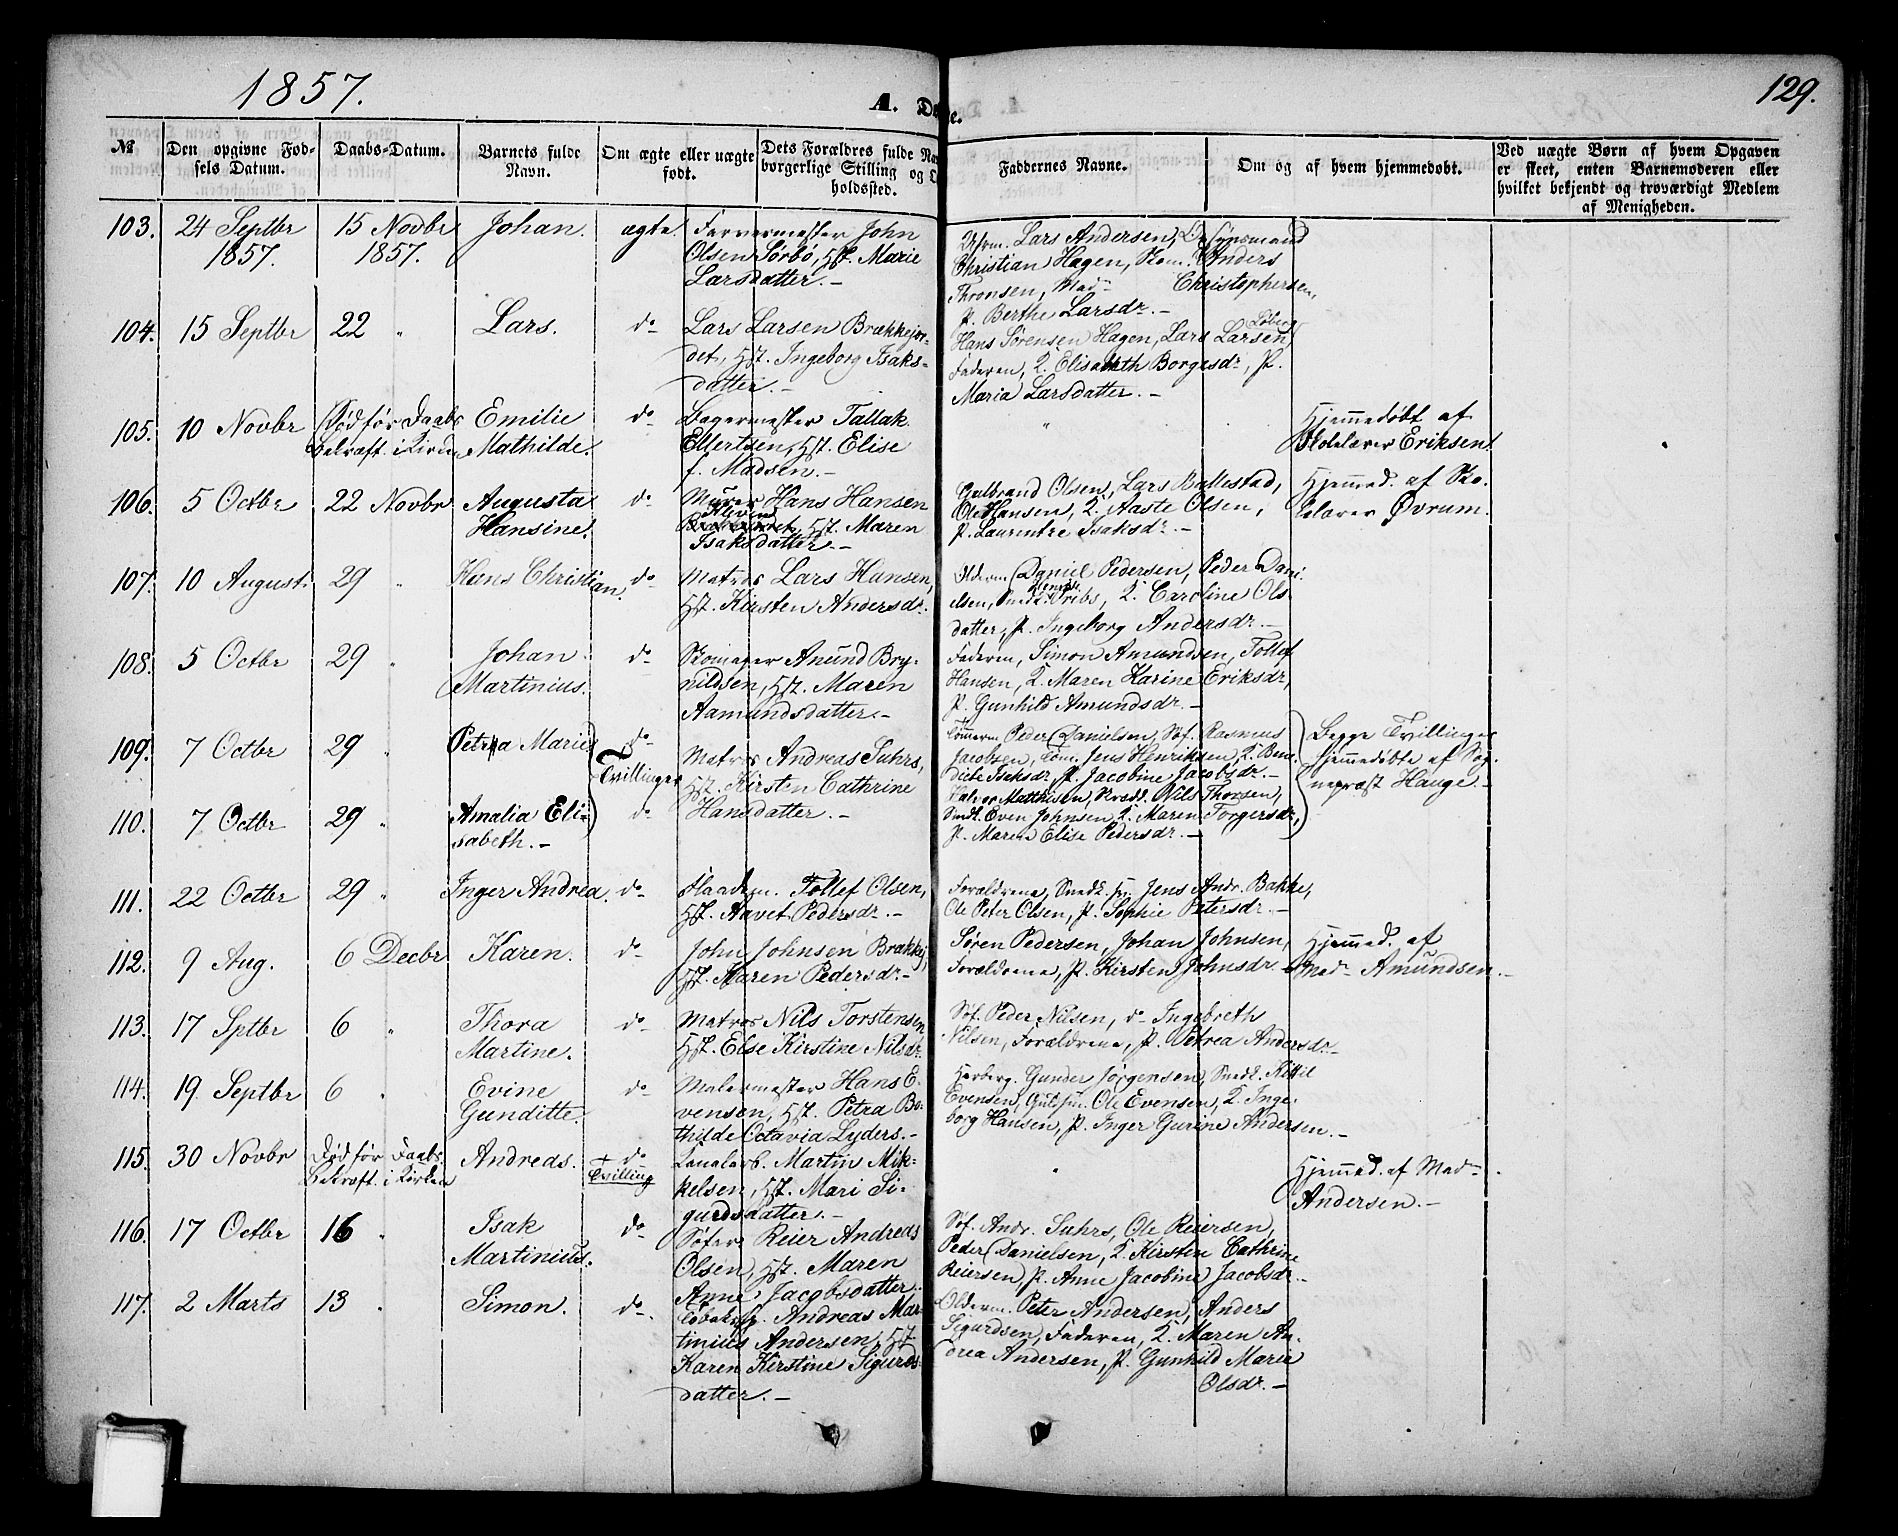 1857.
A. Dø
e.
129.
№ Den opgivne Fød- Daabs-Datum. Barnets fulde Om ægte eller uægte Dets Forældres fulde Na
sels Datum. Navn. født. borgerlige Stilling og O
holdssted.
Faddernes Navne. Om og af hvem hjemmedøbt. Ved uægte Børn af hvem Opgaven
er skeet, enten Barnemoderen eller
hvilket bekjendt og troværdigt Medlem
af Menigheden.
103. 24 Septbr 15 Novbr Johan. ægte. Farvermester John
1857. 1857. Olsen Sørbö, Hst. Marie
Larsdatter.-
Lars Andersen, Opsynsmand
Christian Hagen, Skom. Anders
Thronsen, Mad- Christophersen,
P. Berthe Larsdr.-
104. 15 Septbr 22 " Lars. do- Lars Larsen Brækkejor-
det, Hst. Ingeborg Isaks-
datter.-
Løberg
Hans Sørensen Hagen, Lars Larsen
Faderen, K. Elisabeth Borgesdr, P.
Maria Larsdatter.-
105. 10 Novbr (Død før Daabs Emilie do- Bagermester Tallak
Bekræft. i Kirken Mathilde. Ellertsen, Hst. Elise
f. Madsen.-
" Hjemmedøbt af
Skolelærer Eriksen.
106. 5 Octbr 22 Novbr Augusta do- Murer Hans Hansen
Hansine. Kleven Hst. Maren
Isaksdatter.-
Gulbrand Olsen, Lars Rallestad,
Ole Hansen, K. Aaste Olsen,
P. Laurentze Isaksdr.-
Hjemmed. af Sko-
lelærer Øvrum.
107. 10 August. 29 " Hans Christian. do- Matros Lars Hansen,
Hst. Kirsten Andersdr.
Olderm. Daniel Pedersen, Peder Dani-
elsen, Snedk. Fribs, K. Caroline Ols-
datter, P. Ingeborg Andersdr.-
108. 5 Octbr 29 " Johan do- Skomager Anund Bry-
Martinius. nildsen, Hst. Maren
Aamundsdatter.-
Faderen, Simon Amundsen, Tollef
Hansen, K. Maren Karine Eriksdr,
P. Gunhild Amundsdr.-
109. 7 Octbr 29 " Petrea Marie do- Matros Andreas Suhrs,
Tvillinger Hst. Kirsten Cathrine
Hansdatter.-
Tömmerm. Peder Danielsen, Söf. Rasmus
Jacobsen, Töm. Jens Henriksen, K. Bene-
dicte Isaksdr, P. Jacobine Jacobsdr.-
Begge Tvillinger
hjemmedøbte af Sog-
nepræst Hauge.-
110. 7 Octbr 29 " Amalia Eli- do-
sabeth.-
Halvor Matthisen, Skredd. Nils Thorsen,
Snedk. Even Johnsen K. Maren Torgersdr,
P. Maren Elise Pedersdr.-
111. 22 Octbr 29 " Inger Andrea. do- Flaadem. Tollef Olsen,
Hst. Aavet Pedersdr.-
Forældrene, Snedk. sv. Jens Andr. Bakke,
Ole Peter Olsen, P. Sophie Petersdr.-
112. 9 Aug. 6 Decbr Karen. do- John Johnsen Brækkej,
Hst. Karen Pedersdr.-
Søren Pedersen, Johan Johnsen,
Forældrene, P. Kirsten Johnsdr.-
Hjemmed. af
Mad- Amundsen.-
113. 17 Sptbr 6 " Thora do- Matros Nils Torstensen
Martine. Hst. Else Kirstine Nilsdr.
Söf. Peder Nilsen, do- Ingebreth
Nilsen, Forældrene, P. Petrea Andersdr.-
114. 19 Septbr 6 " Evine do- Malermester Hans E-
Gunditte. vensen, Hst. Petra Bo-
thilde Octavia Lyders.-
Herberg. Gunder Jörgensen, Snedk. Kittil
Evensen, Guldsm. Ole Evensen, K. Inge-
borg Hansen, P. Inger Gurine Andersen.-
115. 30 Novbr Død før Daabs Andreas. + do-
Bekræft. i Kirken Tvilling Martin Mik-
kelsen, Hst. Mari Si-
gurdsdatter.-
" Hjemmed. af Mad-
Andersen.-
116. 17 Octbr 16 " Isak do- Söfar. Reier Andreas
Martinius. Olsen, Hst. Maren
Anne Jacobsdatter.
Söf. Andr. Suhrs, Ole Reiersen,
Peder Danielsen, K. Kirstine Cathrine
Reiersen, P. Anne Jacobine Jacobsdr.-
117. 2 Marts 13 " Simon. do- Andreas Mar-
tinius Andersen, Hst.
Karen Kirstine Sigurds-
datter.-
Olderm. Peter Andersen, Anders
Sigurdsen, Faderen, K. Maren An-
drea Andersen, P. Gunhild Marie
Olsdr.-